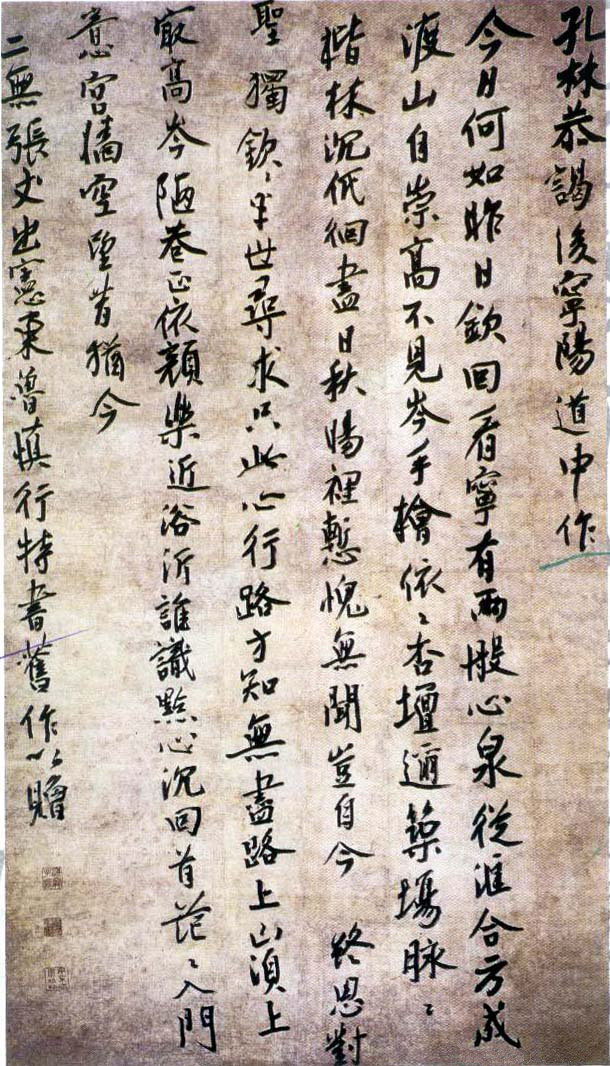 孔林恭謁後寧陽道中作
今日何如昨日欽回看寧有兩般心泉從滙合方成
渡山自崇高不見岑手檜依〻杏壇邇築場脉〻
楷林沉低徊盡日秋暘裡慙愧無聞豈自今 終思對
聖獨欽〻半世尋求只此心行路方知無盡路上山須上
最高岑陋巷正依顏樂近浴沂誰識點心沉回首茫〻入門
意宮墻空望昔猶今
二無張丈出憲東魯慎行特書舊作以贈